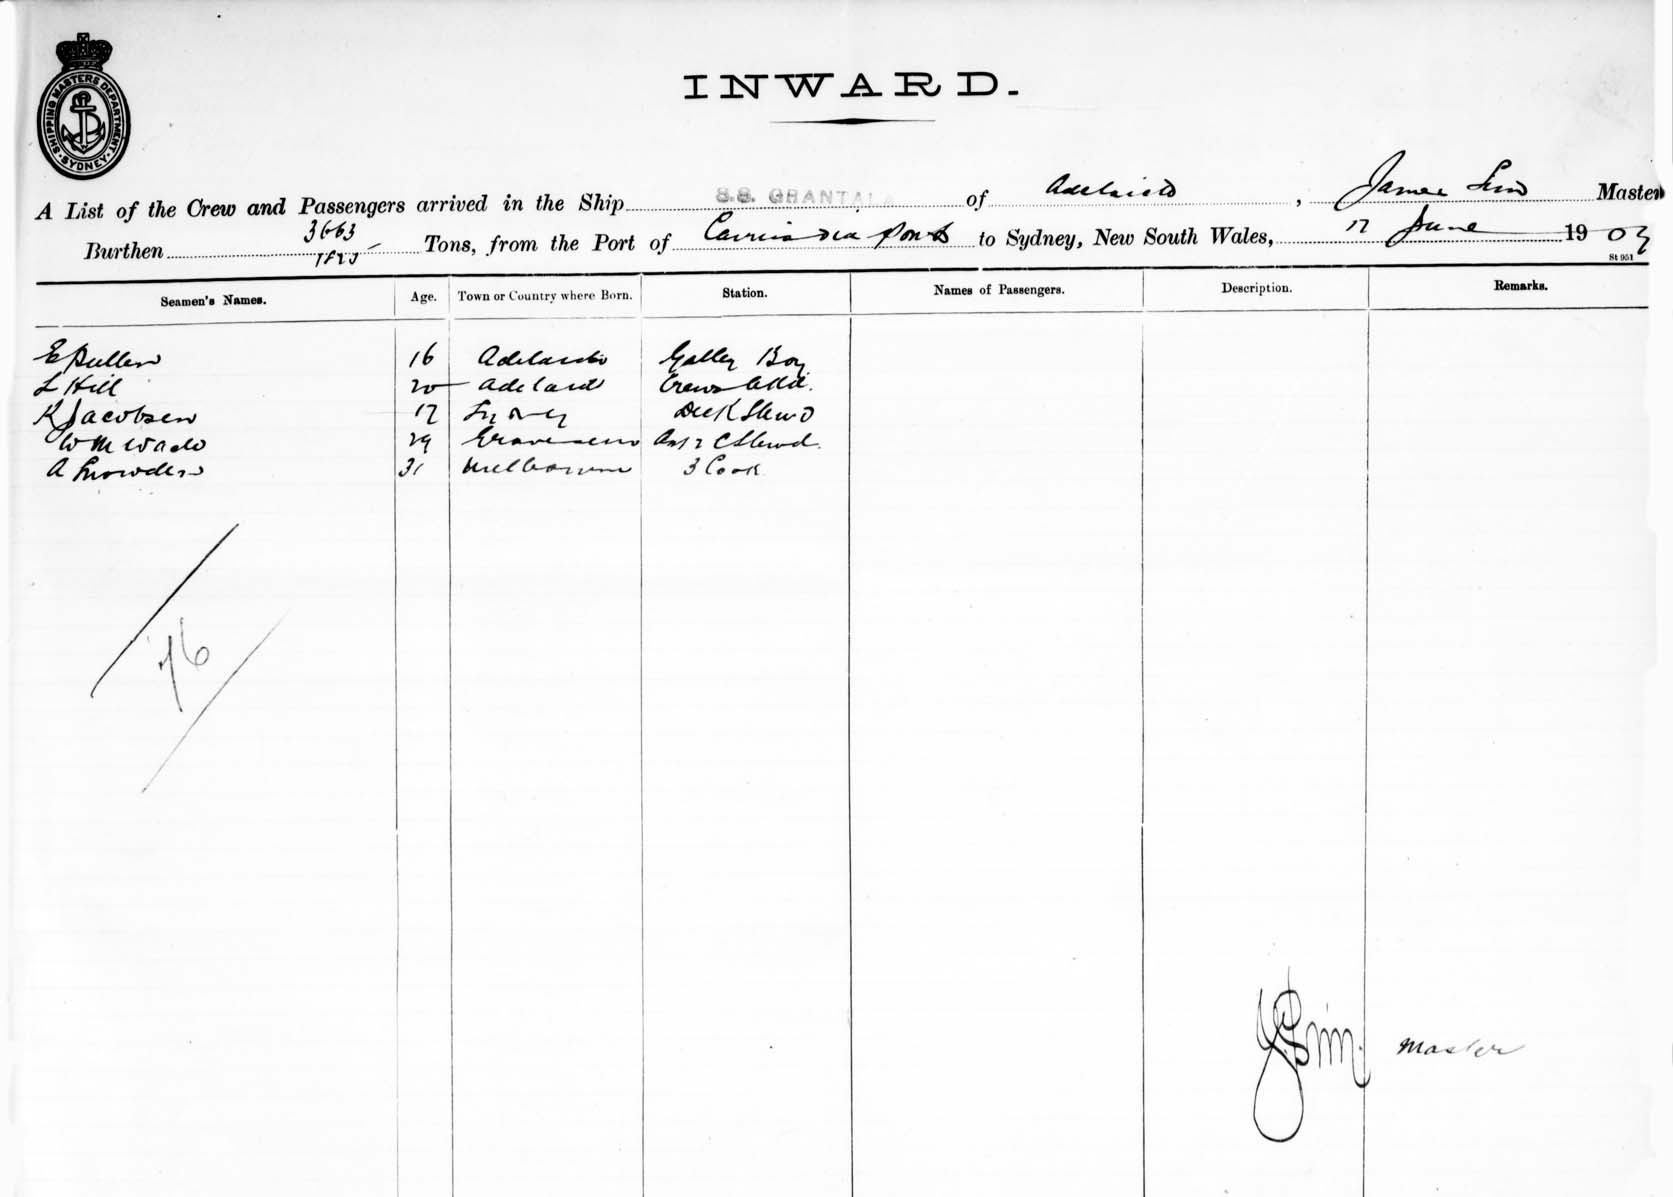 SHIPPING MASTERS DEPARTMENT. SYDNEY
INWARD.
A List of the Crew and Passengers arrived in the Ship S.S. GRANTALA of Adelaide, James Sim Master
Burthen 3663 Tons, from the Port of Cairns via ports to Sydney, New South Wales, 17 June 1903
St 951
Seamen's Names. Age. Town or Country where Born. Station. Names of Passengers. Description. Remarks.
E Pullen 16 Adelaide Galley Boy
L Hill 20 Adelaide Crews Attd.
K Jacobsen 17 Sydney Deck Stewd
W M Wade 29 Gravesend Asst 2 C Stewd.
A Snowden 31 Melbourne 3 Cook
76
J Sim. Master